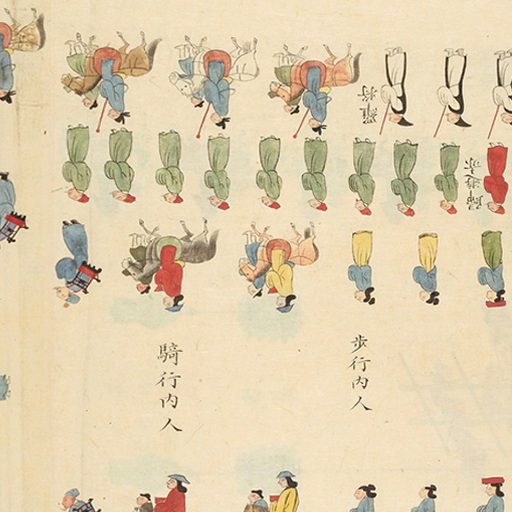 羅將
步行內人
騎行內人